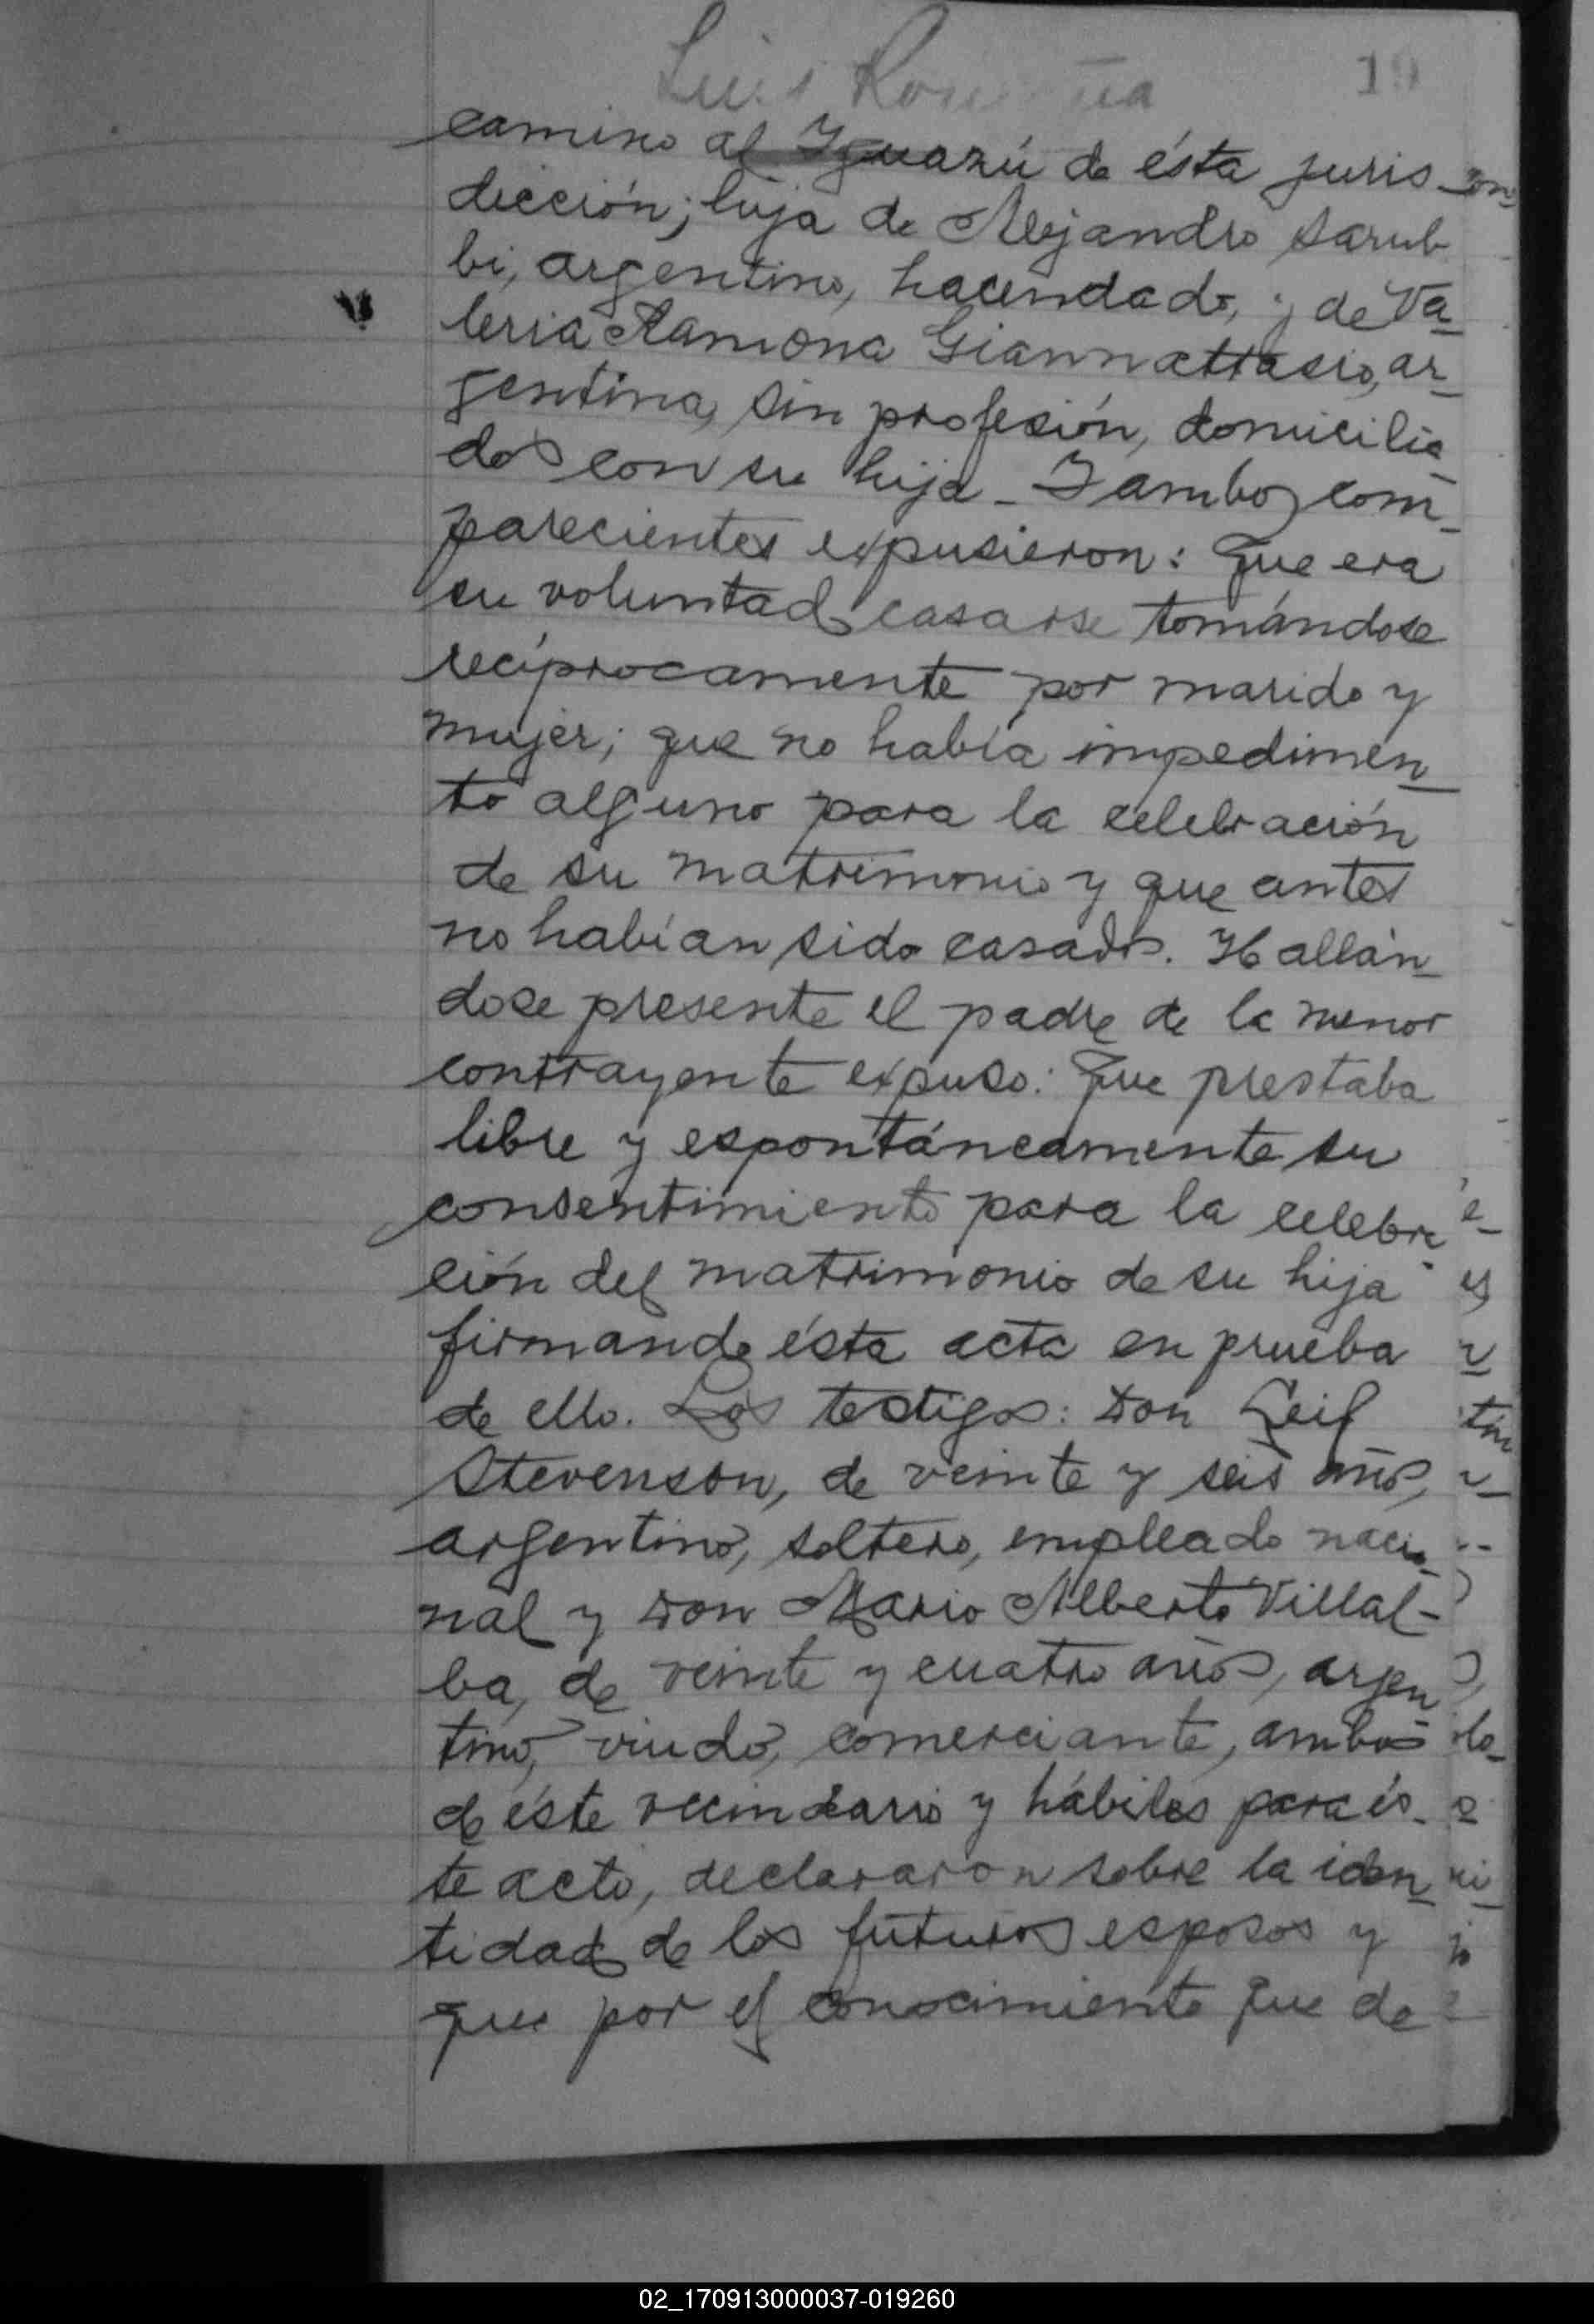 Luis
19
camino al Iguazú de ésta juris
dicción; hija de Alejandro Sarub
bi, argentino, hacendado, y de Va
leria Ramona Giannattasio, ar
gentina, sin profesión, domicilia
dos con su hija - I ambos com
parecientes expusieron: Que era
su voluntad casarse tomándose
recíprocamente por marido y
mujer; que no había impedimen
to alguno para la celebración
de su matrimonio y que antes
no habían sido casados. Hallán
dose presente el padre de la menor
contrayente expuso: Que prestaba
libre y espontáneamente su
consentimiento para la celebra
ción del matrimonio de su hija
firmando ésta acta en prueba
de ello. Los testigos: Don Leif
Stevenson, de veinte y seis años,
argentino, soltero, empleado nacio
nal y Don Mario Alberto Villal-
ba, de veinte y cuatro años, argen
tino, viudo, comerciante, ambos
de éste vecindario y hábiles para és-
te acto, declararon sobre la iden
tidad de los futuros esposos y
que por el conocimiento que de
02_170913000037-019260